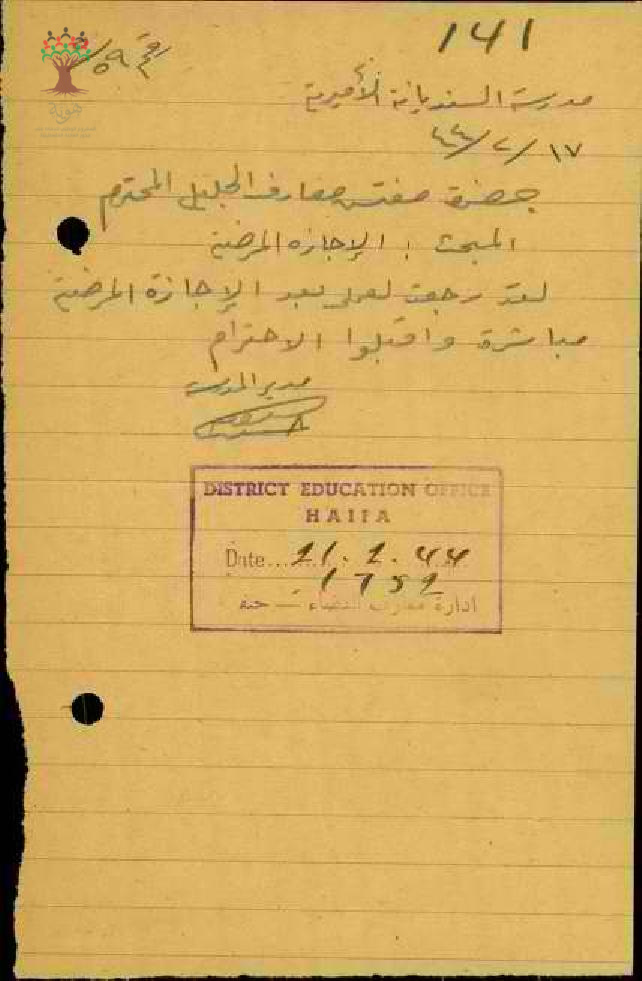 141
مدرسة السنديانة الأميرية
١٧/٢/٤٤
حضرة مفتش معارف الجليل المحترم
المبحث : الإجازه المرضية
لقد رجعت لعملي بعد الإجازة المرضية
مباشرة واقبلوا الاحترام
مدير المدرسة
DISTRICT EDUCATION OFFICE
HAIFA
Date... 21.2.44
1752
ادارة معارف القضاء — حيفا